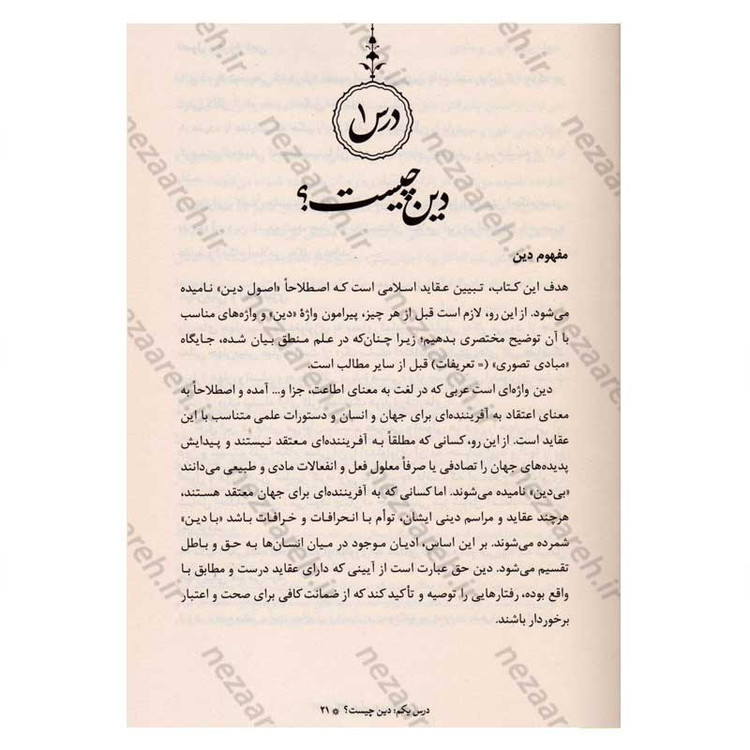 درس ۱
دین چیست؟
مفهوم دین
هدف این کتاب، تبیین عقاید اسلامی است که اصطلاحاً «اصول دین» نامیده
می‌شود. از این رو، لازم است قبل از هر چیز، پیرامون واژهٔ «دین» و واژه‌های مناسب
با آن توضیح مختصری بدهیم؛ زیرا چنان‌که در علم منطق بیان شده، جایگاه
«مبادی تصوری» (= تعریفات) قبل از سایر مطالب است.
دین واژه‌ای است عربی که در لغت به معنای اطاعت، جزا و... آمده و اصطلاحاً به
معنای اعتقاد به آفریننده‌ای برای جهان و انسان و دستورات علمی متناسب با این
عقاید است. از این رو، کسانی که مطلقاً به آفریننده‌ای معتقد نیستند و پیدایش
پدیده‌های جهان را تصادفی یا صرفاً معلول فعل و انفعالات مادی و طبیعی می‌دانند
«بی‌دین» نامیده می‌شوند. اما کسانی که به آفریننده‌ای برای جهان معتقد هستند،
هرچند عقاید و مراسم دینی ایشان، توأم با انحرافات و خرافات باشد «با دین»
شمرده می‌شوند. بر این اساس، ادیان موجود در میان انسان‌ها به حق و باطل
تقسیم می‌شود. دین حق عبارت است از آیینی که دارای عقاید درست و مطابق با
واقع بوده، رفتارهایی را توصیه و تأکید کند که از ضمانت کافی برای صحت و اعتبار
برخوردار باشند.
درس یکم: دین چیست؟ * ۲۱
nezaareh.ir